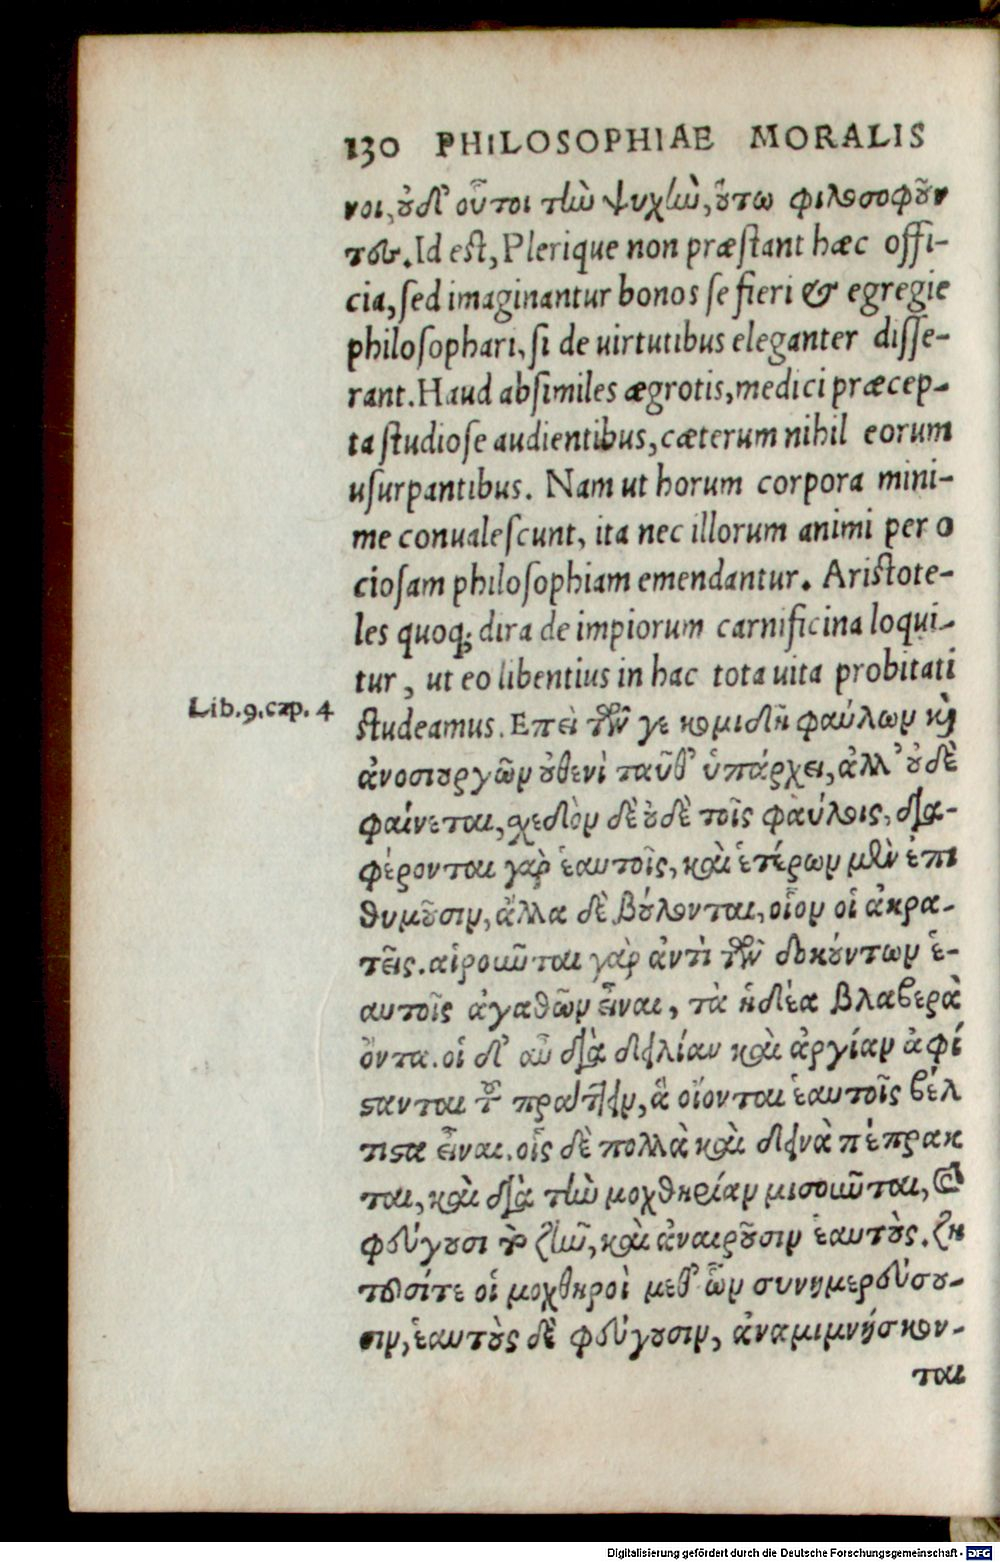 130 PHILOSOPHIAE MORALIS
νοι, ȣ̓δ' οὗτοι τὴν ψυχὴν, ȣ̔́τω φιλοσοφȣ͂ν
τες. Id est, Plerique non præſtant hæc offi-
cia, ſed imaginantur bonos ſe fieri & egregie
philoſophari, ſi de uirtutibus eleganter diſſe-
rant. Haud abſimiles ægrotis, medici præcep-
ta ſtudioſe audientibus, cæterum nihil eorum
uſurpantibus. Nam ut horum corpora mini-
me conualeſcunt, ita nec illorum animi per o
cioſam philoſophiam emendantur. Ariſtote-
les quoq; dira de impiorum carnificina loqui-
tur, ut eo libentius in hac tota uita probitati
Lib. 9. cap. 4
ſtudeamus. Επεὶ τῶν γε κομιδῆ φαύλων κὶ
ἀνοσιȣργῶν ȣ̓θενὶ ταῦθ' ὑπάρχει, ἀλλ' ȣ̓δὲ
φαίνεται, σχεδὸν δὲ ȣ̓δὲ τοῖς φαύλοις, δια-
φέρονται γὰρ ἑαυτοῖς, καὶ ἑτέρων μὲν ἐπι
θυμȣ͂σιν, ἄλλα δὲ βȣ́λονται, οἷον οἱ ἀκρα-
τεῖς. αἱροῦνται γὰρ ἀντὶ τῶν δοκȣ́ντων ἑ-
αυτοῖς ἀγαθῶν εἶναι, τὰ ἡδέα βλαβερὰ
ὄντα. οἱ δ' αὖ διὰ δειλίαν καὶ ἀργίαν ἀφί
ϛανται τοῦ πράττειν, ἃ οἴονται ἑαυτοῖς βέλ
τιϛα εἶναι. οἷς δὲ πολλὰ καὶ δεινὰ πέπρακ
ται, καὶ διὰ τὴν μοχθηρίαν μισοῦνται, καὶ
φεύγȣσι τὸ ζῆν, καὶ ἀναιρȣ͂σιν ἑαυτȣ̀ς. ζη
τȣσίτε οἱ μοχθηροὶ μεθ' ὧν συνημερεύσȣ-
σιν, ἑαυτȣ̀ς δὲ φεύγȣσιν, ἀναμιμνήσκον-
ται
Digitalisierung gefördert durch die Deutsche Forschungsgemeinschaft - DFG